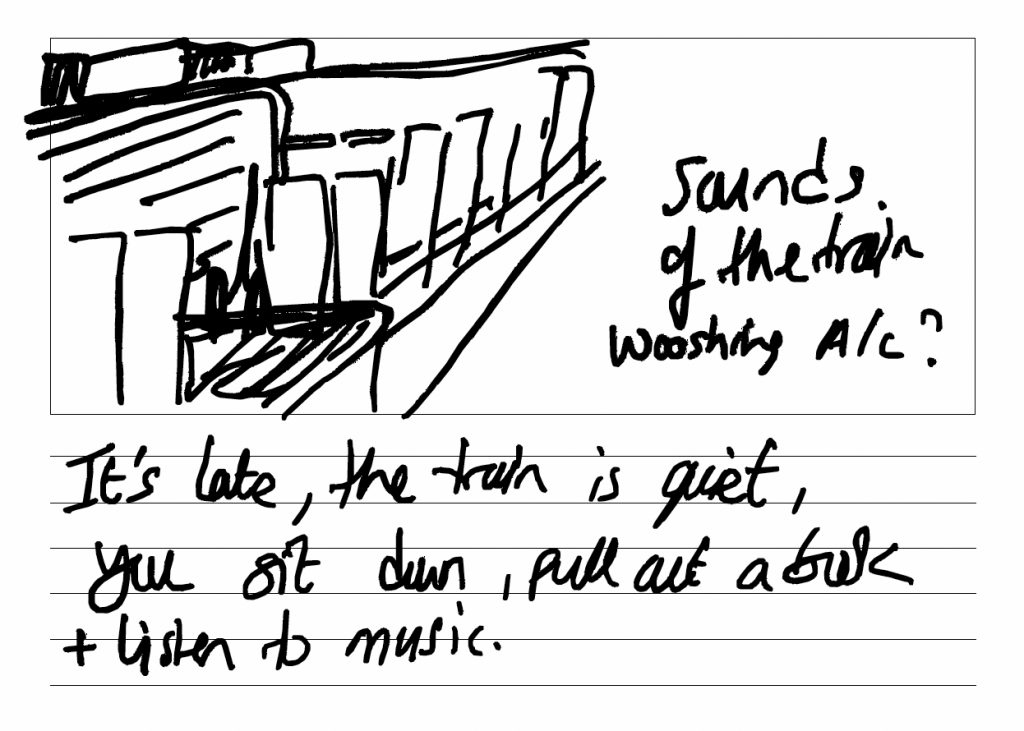 Sounds.
of the train
wooshing A/c?
It's late, the train is quiet,
you sit down, pull out a book
+ listen to music.